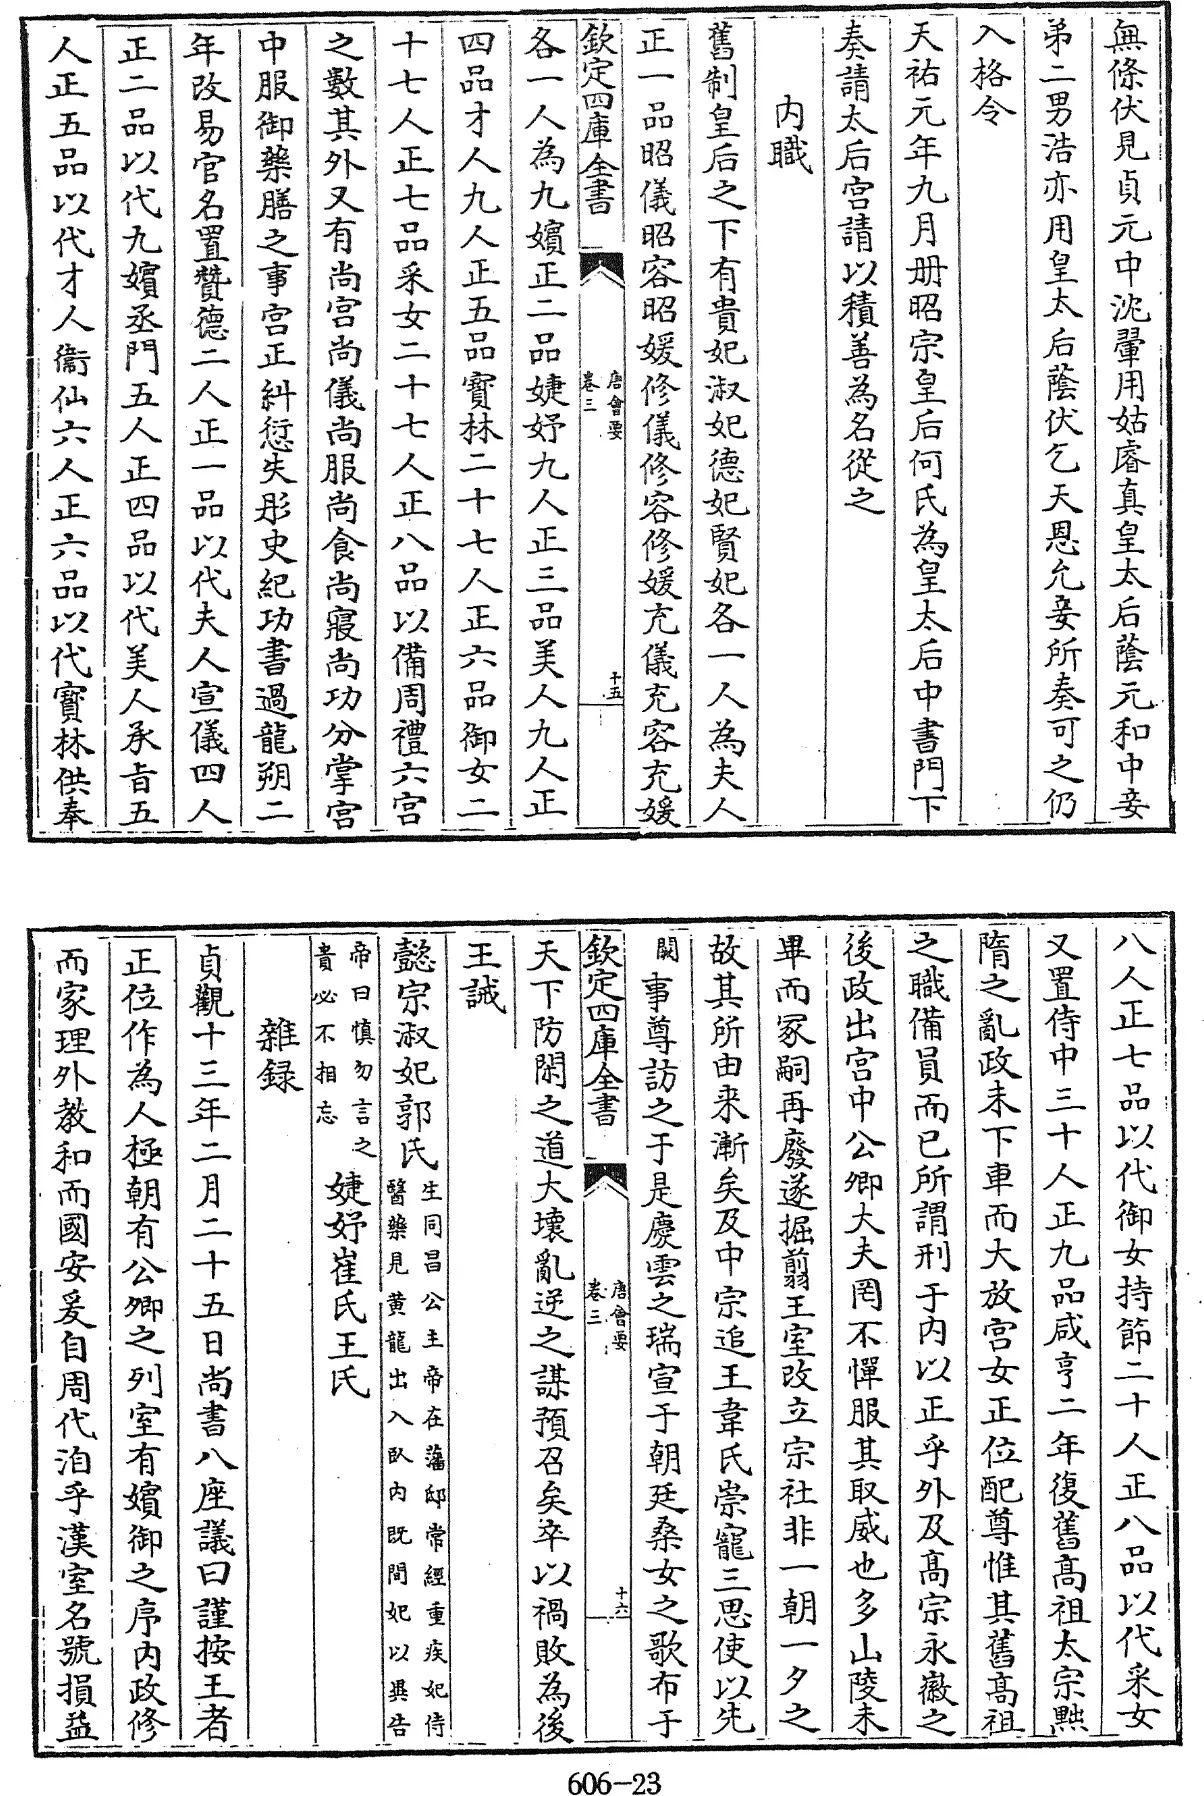 無條伏見貞元中沈翬用姑睿真皇太后蔭元和中妾
弟二男浩亦用皇太后蔭伏乞天恩允妾所奏可之仍
入格令
天祐元年九月冊昭宗皇后何氏為皇太后中書門下
奏請太后宮請以積善為名從之
內職
舊制皇后之下有貴妃淑妃德妃賢妃各一人為夫人
正一品昭儀昭容昭媛修儀修容修媛充儀充容充媛
欽定四庫全書
唐會要
卷三
十五
各一人為九嬪正二品婕妤九人正三品美人九人正
四品才人九人正五品寶林二十七人正六品御女二
十七人正七品采女二十七人正八品以備周禮六宮
之數其外又有尚宮尚儀尚服尚食尚寢尚功分掌宮
中服御藥膳之事宮正糾愆失彤史紀功書過龍朔二
年改易官名置贊德二人正一品以代夫人宣儀四人
正二品以代九嬪丞門五人正四品以代美人承旨五
人正五品以代才人衞仙六人正六品以代寶林供奉
八人正七品以代御女持節二十人正八品以代采女
又置侍中三十人正九品咸亨二年復舊高祖太宗黜
隋之亂政未下車而大放宮女正位配尊惟其舊高祖
之職備員而已所謂刑于內以正乎外及髙宗永徽之
後政出宮中公卿大夫罔不憚服其取威也多山陵未
畢而冢嗣再廢遂掘翦王室改立宗社非一朝一夕之
故其所由来漸矣及中宗追王韋氏崇寵三思使以先
闕事尊訪之于是慶雲之瑞宣于朝廷桑女之歌布于
欽定四庫全書
唐會要
卷三
十六
天下防閑之道大壞亂逆之謀預召矣卒以禍敗為後
王誡
懿宗淑妃郭氏生同昌公主帝在藩邸常經重疾妃侍
醫藥見黄龍出入臥內既間妃以異告
帝曰慎勿言之
貴必不相忘婕妤崔氏王氏
雜録
貞觀十三年二月二十五日尚書八座議曰謹按王者
正位作為人極朝有公卿之列室有嬪御之序內政修
而家理外教和而國安爰自周代洎乎漢室名號損益
606-23